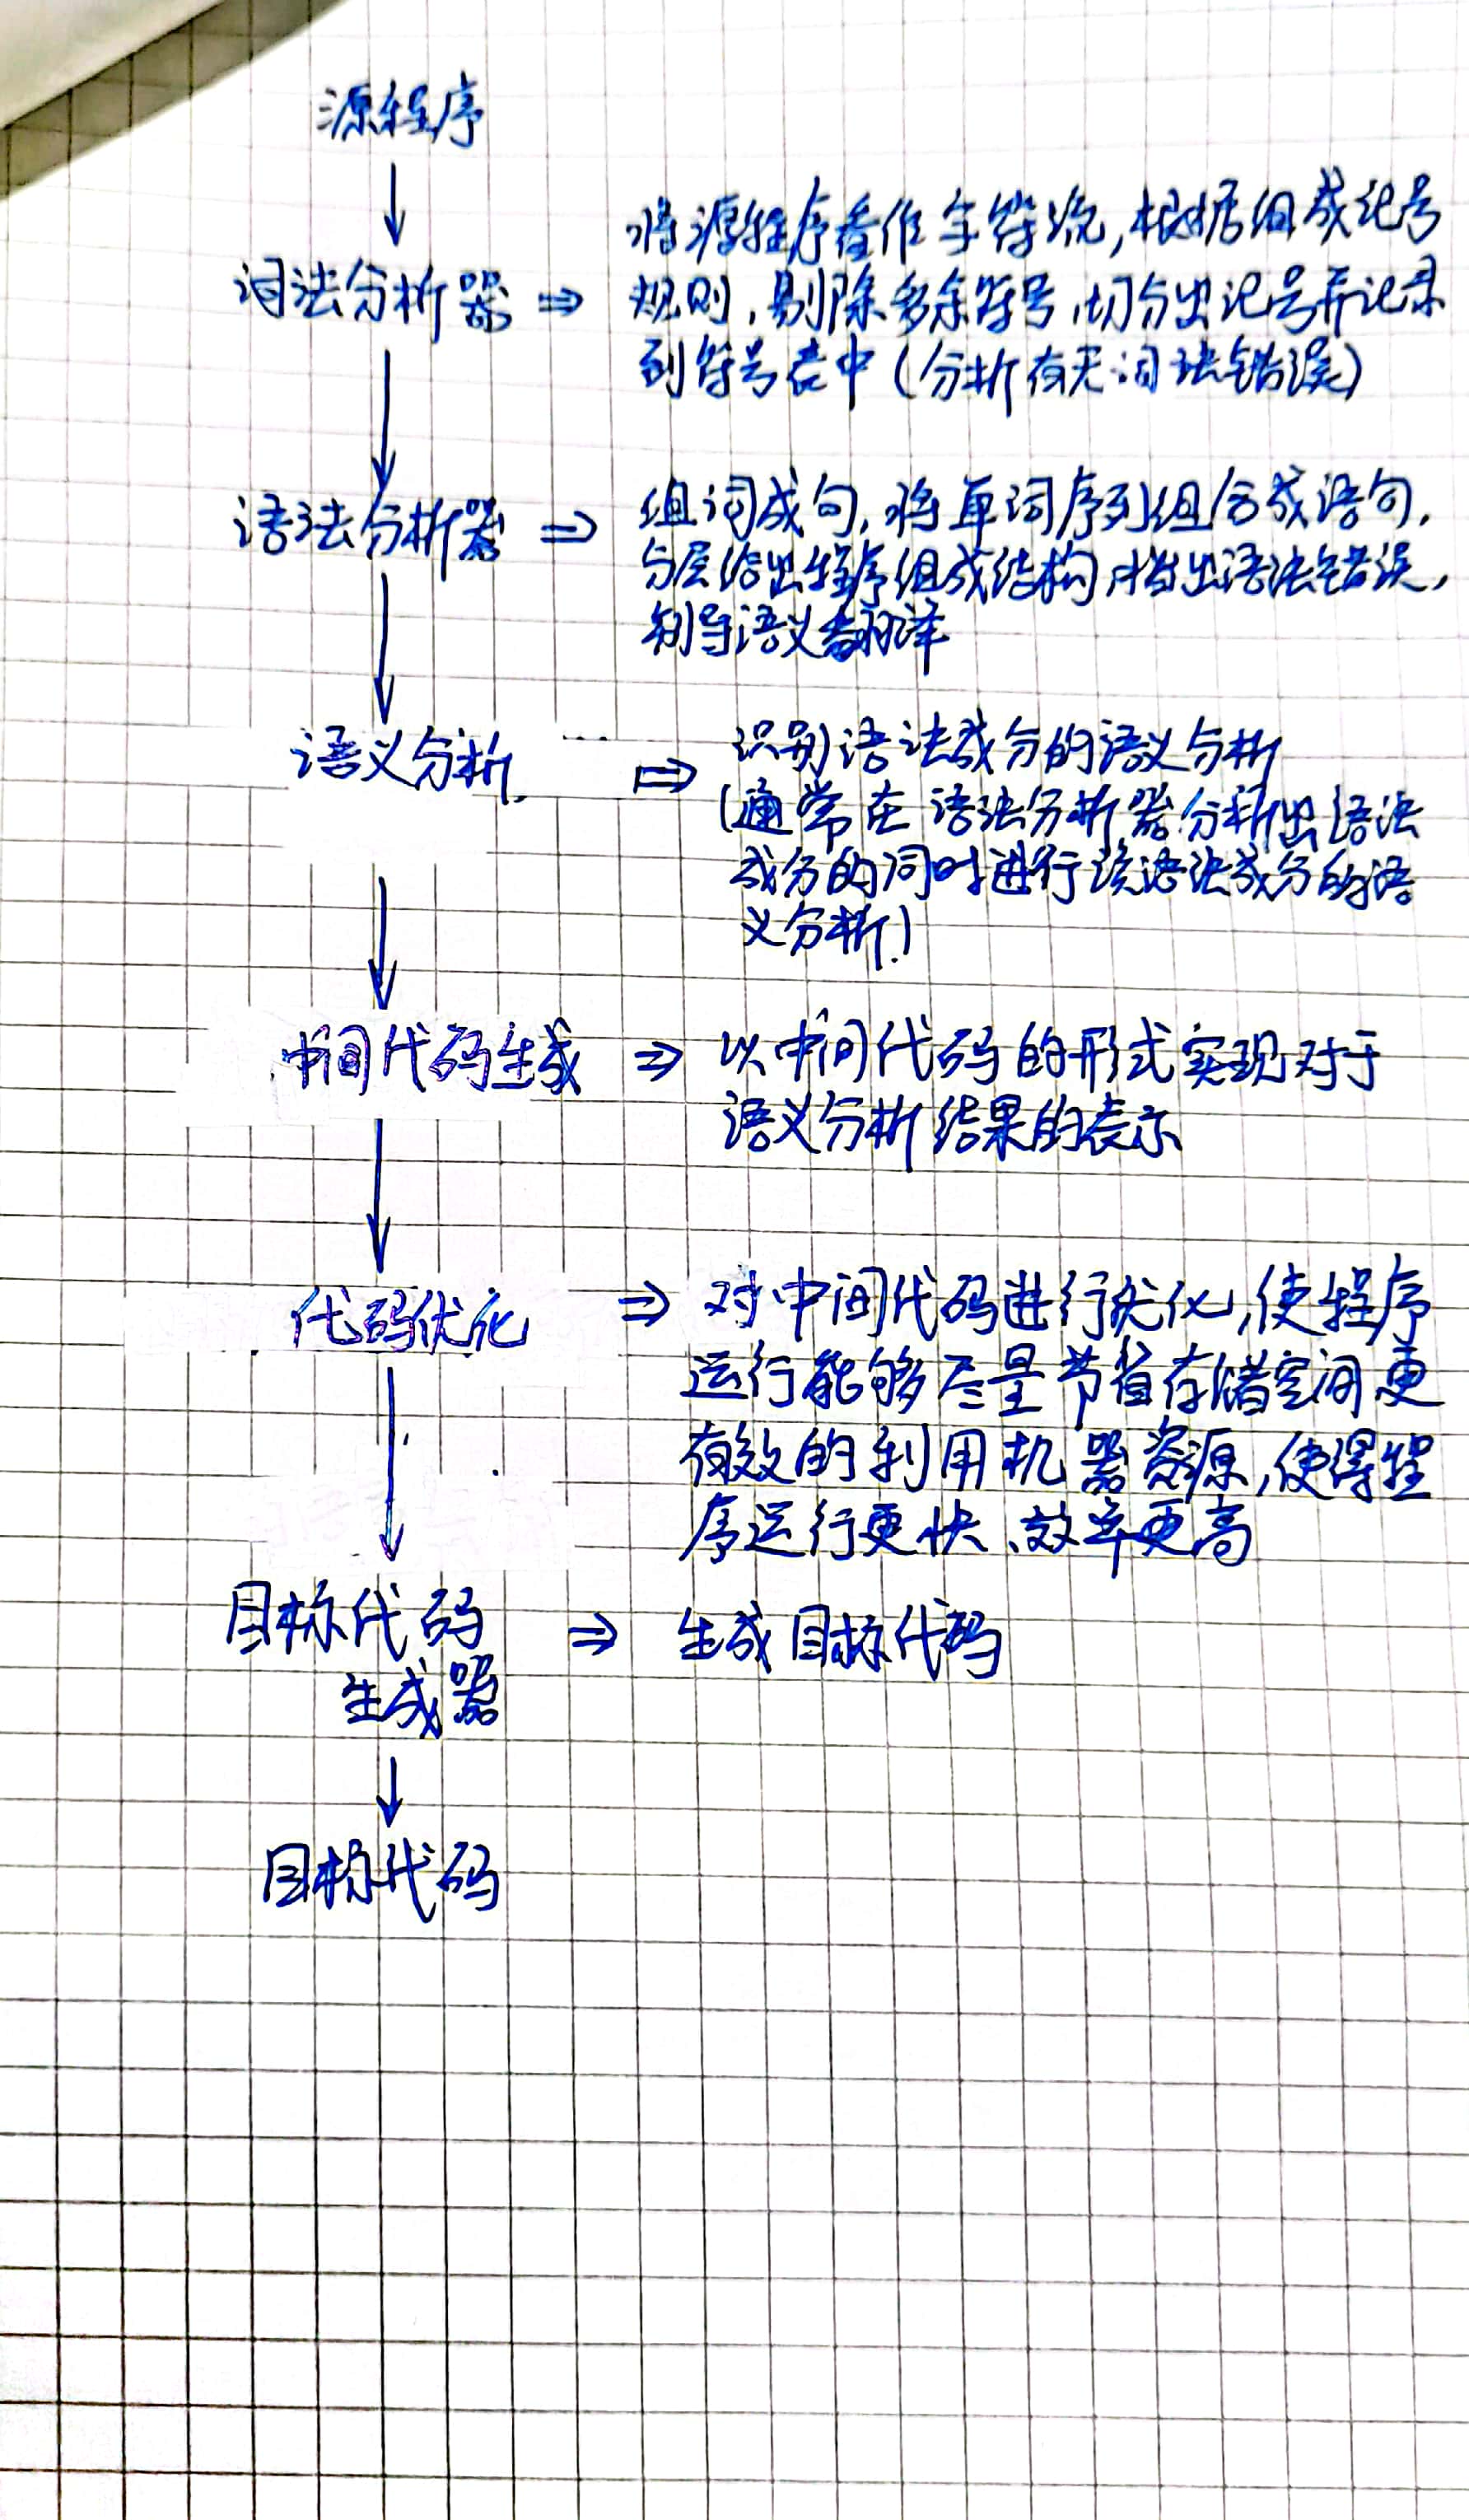 源程序
词法分析器 ⇒ 将源程序看作字符流,根据组成记号
规则,剔除多余符号,切分出记号并记录
到符号表中(分析有无词法错误)
语法分析器 ⇒ 组词成句,将单词序列组合成语句,
分层给出程序组成结构,指出语法错误,
制导语义翻译
语义分析 ⇒ 识别语法成分的语义分析
(通常在语法分析器分析出语法
成分的同时进行该语法成分的语
义分析)
中间代码生成 ⇒ 以中间代码的形式实现对于
语义分析结果的表示
代码优化 ⇒ 对中间代码进行优化,使程序
运行能够尽量节省存储空间更
有效的利用机器资源,使得程
序运行更快、效率更高
目标代码 ⇒ 生成目标代码
生成器
目标代码